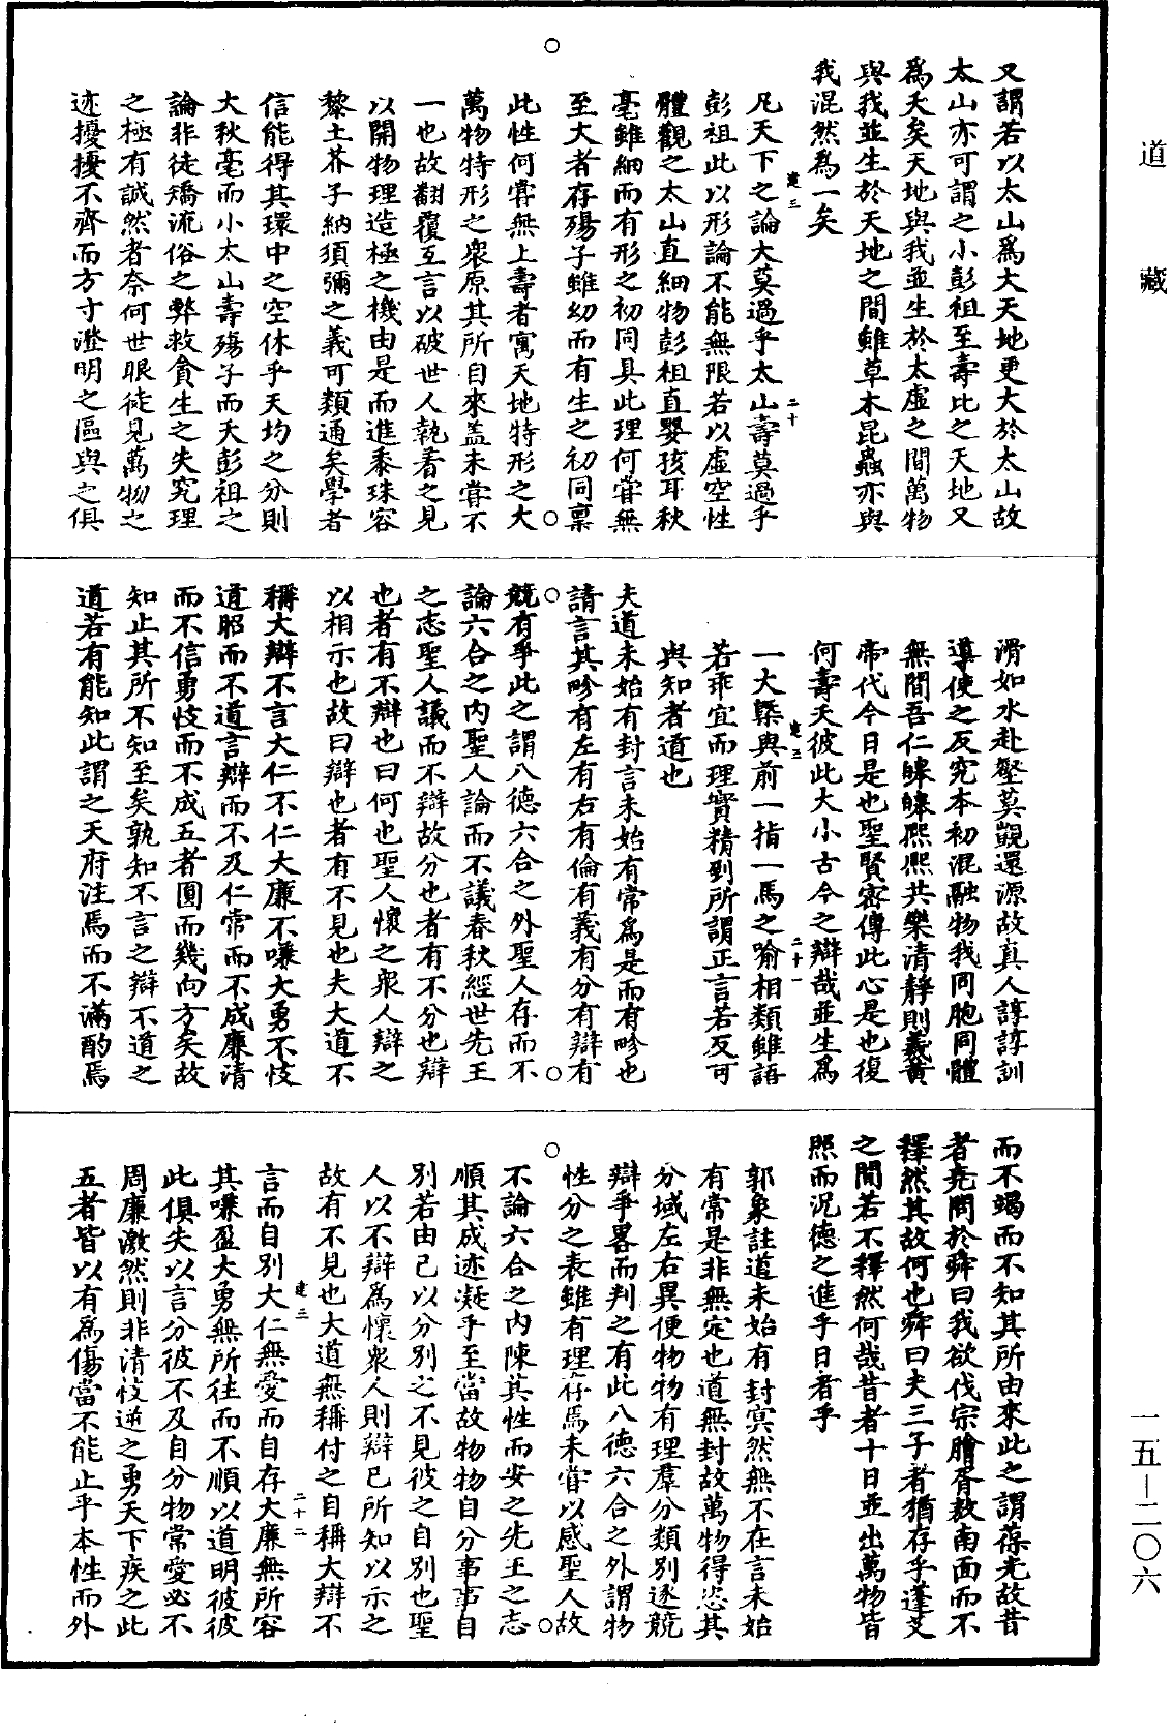 道藏
一五—二〇六
又謂若以太山爲大天地更大於太山故
太山亦可謂之小彭祖至壽比之天地又
爲夭矣天地與我並生於太虛之間萬物
與我並生於天地之間雖草木昆蟲亦與
我混然爲一矣
凡天下之論大莫過乎太山壽莫過乎
建三 二十
彭祖此以形論不能無限若以虛空性
體觀之太山直細物彭祖直嬰孩耳秋
毫雖細而有形之初同具此理何甞無
至大者存殤子雖幼而有生之初同禀
此性何甞無上壽者寓天地特形之大
萬物特形之衆原其所自來盖未甞不
一也故翻覆互言以破世人執着之見
以開物理造極之機由是而進黍珠容
黎土芥子納須彌之義可類通矣學者
信能得其環中之空休乎天均之分則
大秋毫而小太山壽殤子而夭彭祖之
論非徒矯流俗之弊救貪生之失究理
之極有誠然者奈何世眼徒見萬物之
迹擾擾不齊而方寸澄明之區與之俱
滑如水赴壑莫觀還源故真人諄諄訓
導使之反究本初混融物我同胞同體
無間吾仁皞皞熙熙共樂清靜則羲黃
帝代今日是也聖賢密傳此心是也復
何壽夭彼此大小古今之辯哉並生爲
建三 二十一
一大槩與前一指一馬之喻相類雖語
若乖宜而理實精到所謂正言若反可
與知者道也
夫道未始有封言未始有常爲是而有畛也
請言其畛有左有右有倫有義有分有辯有
競有爭此之謂八德六合之外聖人存而不
論六合之内聖人論而不議春秋經世先王
之志聖人議而不辯故分也者有不分也辯
也者有不辯也曰何也聖人懷之衆人辯之
以相示也故曰辯也者有不見也夫大道不
稱大辯不言大仁不仁大廉不嗛大勇不忮
道昭而不道言辯而不及仁常而不成廉清
而不信勇忮而不成五者圓而幾向方矣故
知止其所不知至矣孰知不言之辯不道之
道若有能知此謂之天府注焉而不滿酌焉
而不竭而不知其所由來此之謂葆光故昔
者堯問於舜曰我欲伐宗膾胥敖南面而不
釋然其故何也舜曰夫三子者猶存乎蓬艾
之間若不釋然何哉昔者十日並出萬物皆
照而況德之進乎日者乎
郭象註道未始有封冥然無不在言未始
有常是非無定也道無封故萬物得恣其
分域左右異便物物有理羣分類別逐競
辯爭畧而判之有此八德六合之外謂物
性分之表雖有理存焉未甞以感聖人故
不論六合之内陳其性而安之先王之志
順其成迹凝乎至當故物物自分事事自
別若由已以分別之不見彼之自別也聖
人以不辯爲懷衆人則辯已所知以示之
故有不見也大道無稱付之自稱大辯不
言而自別大仁無愛而自存大廉無所容
建三 二十二
其嗛盈大勇無所往而不順以道明彼彼
此俱失以言分彼不及自分物常愛必不
周廉激然則非清忮逆之勇天下疾之此
五者皆以有爲傷當不能止乎本性而外